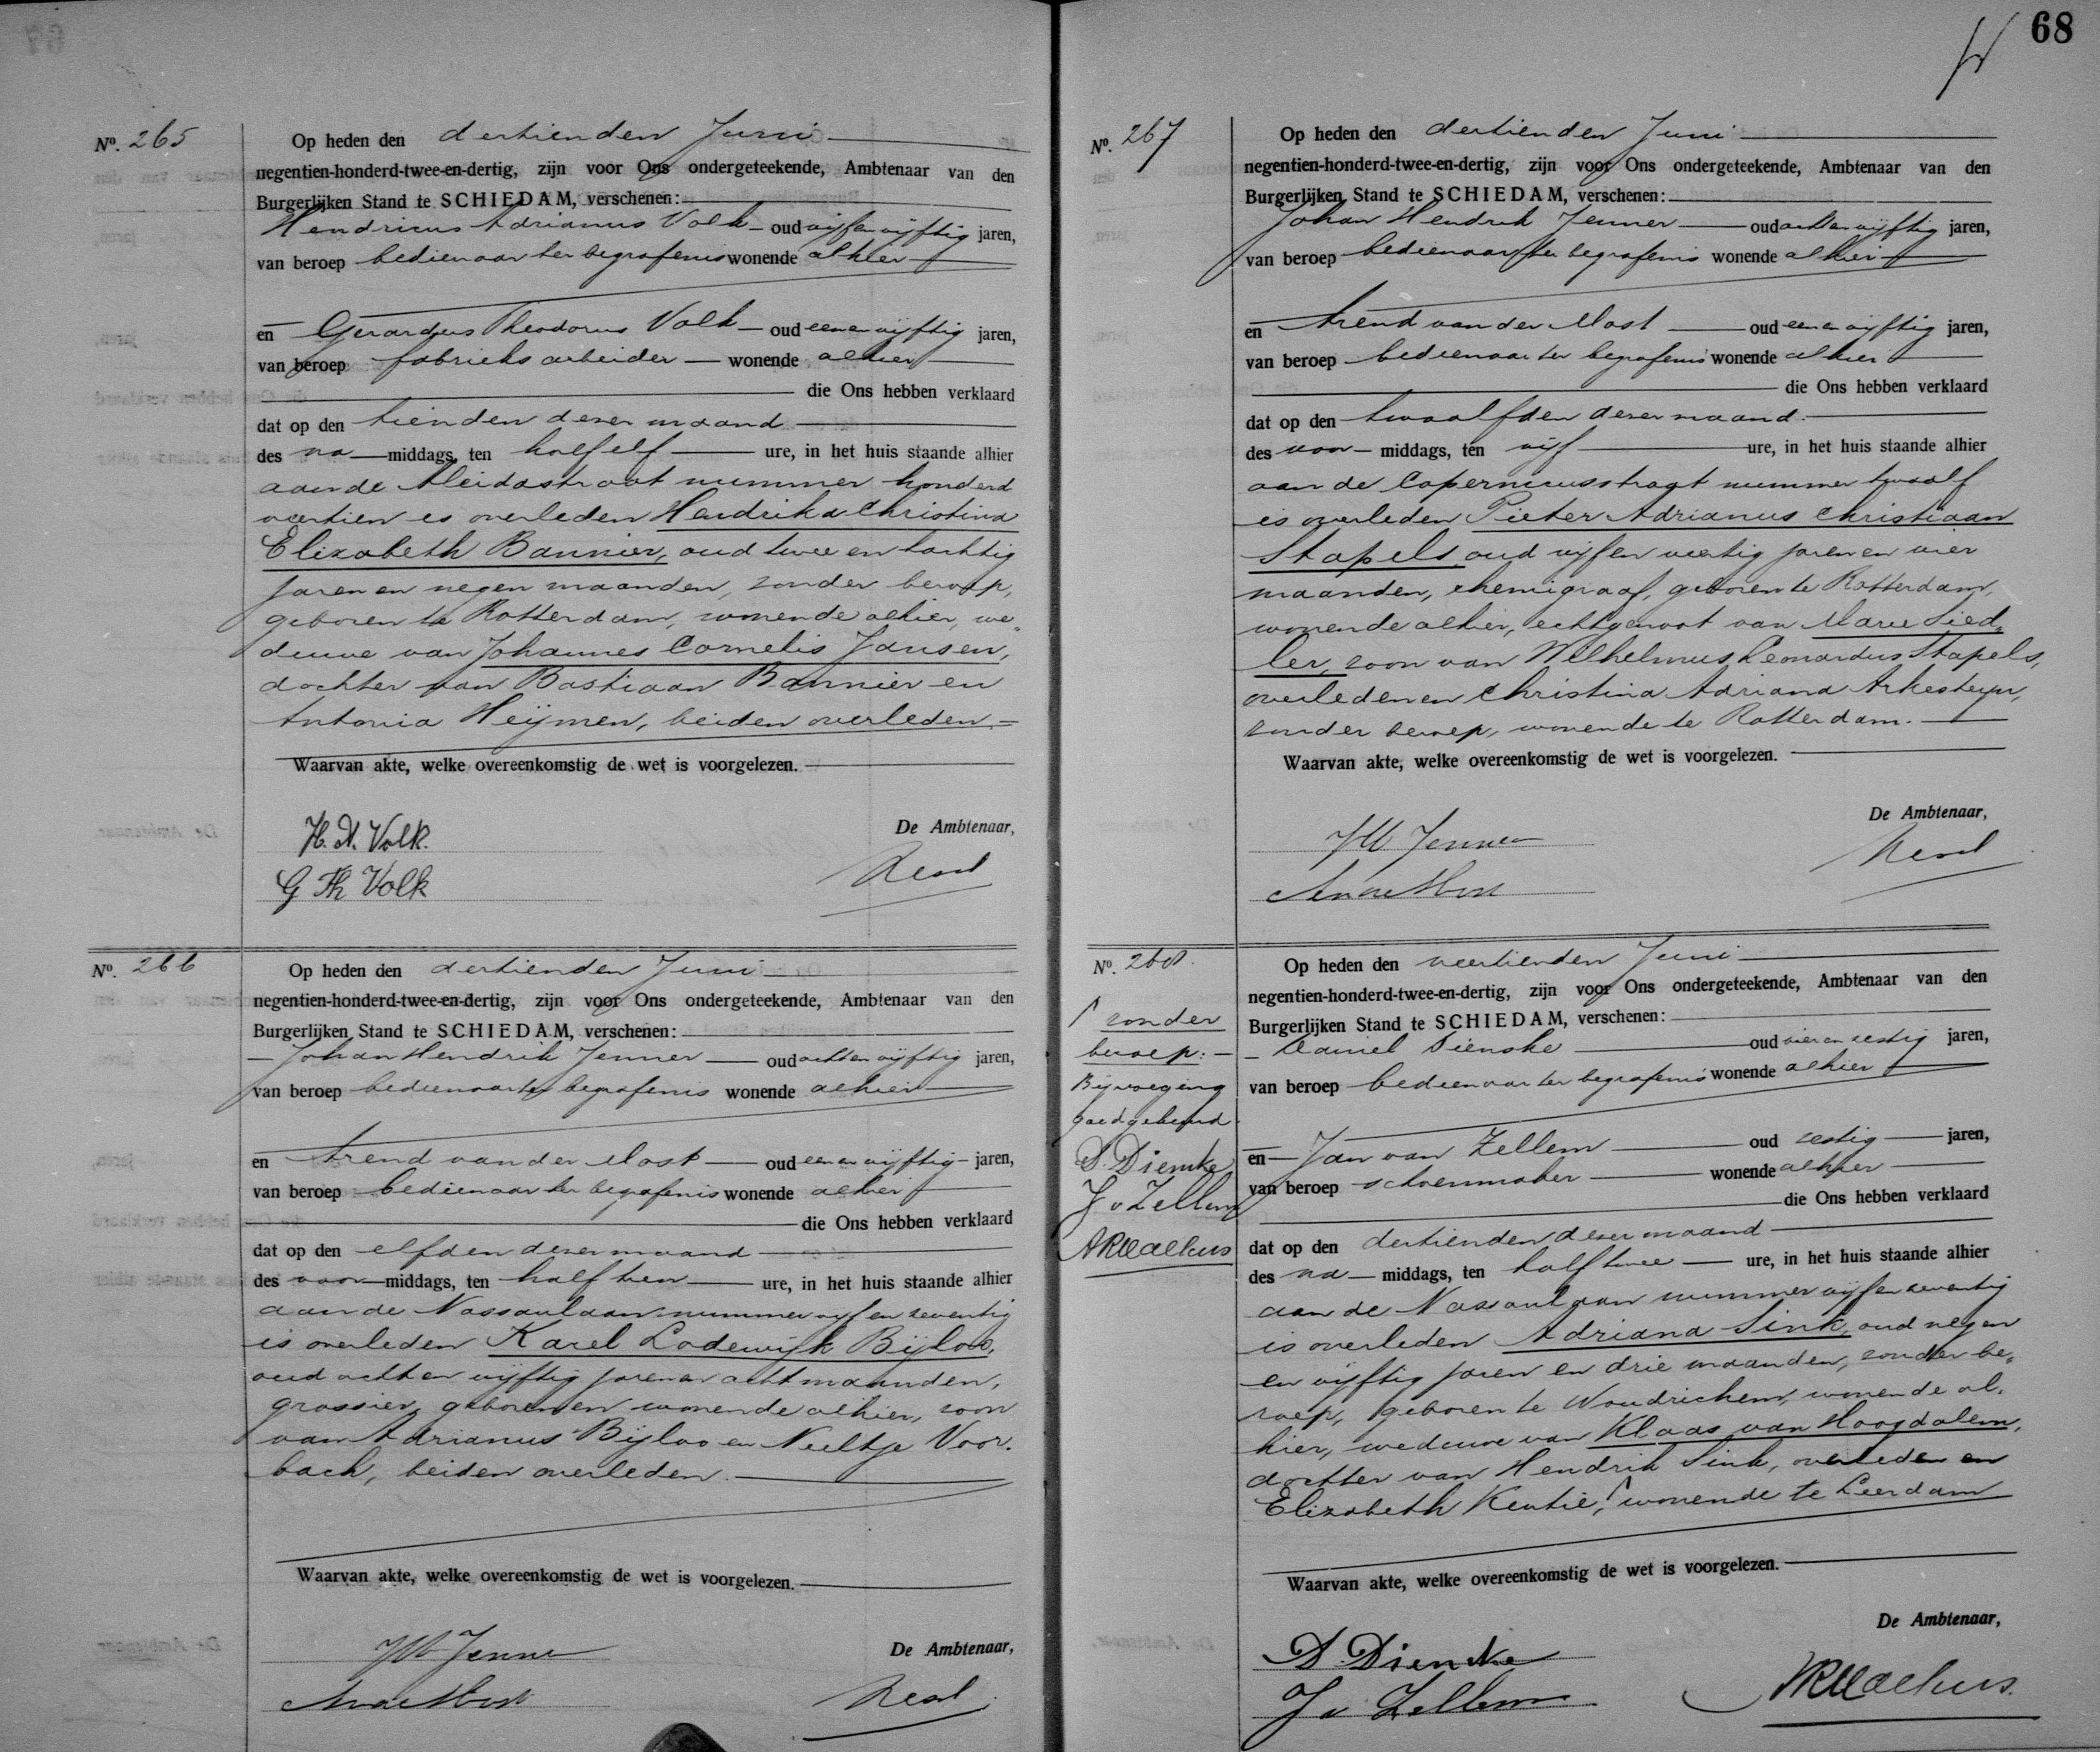 68
Nº. 265
Op heden den dertienden Juni
negentien-honderd-twee-en-dertig, zijn voor Ons ondergeteekende, Ambtenaar van den
Burgerlijken Stand te SCHIEDAM, verschenen:
Hendricus Adrianus Volk oud vijf en vijftig jaren,
van beroep bedienaar ter begrafenis wonende alhier
en Gerardus Theodorus Volk oud een en vijftig jaren,
van beroep fabrieks arbeider wonende alhier
die Ons hebben verklaard
dat op den tienden dezer maand
des na middags, ten half elf ure, in het huis staande alhier
aan de Aleidastraat nummer honderd
veertien is overleden Hendrika Christina
Elizabeth Bannier, oud twee en tachtig
jaren en negen maanden, zonder beroep,
geboren te Rotterdam, wonende alhier, we„
duwe van Johannes Cornelis Jansen,
dochter van Bastiaan Bannier en
Antonia Heijmen, beiden overleden.
Waarvan akte, welke overeenkomstig de wet is voorgelezen.
De Ambtenaar,
H. A. Volk.
G Th Volk
Nº. 266
Op heden den dertienden Juni
negentien-honderd-twee-en-dertig, zijn voor Ons ondergeteekende, Ambtenaar van den
Burgerlijken Stand te SCHIEDAM, verschenen:
Johan Hendrik Jenner oud acht en vijftig jaren,
van beroep bedienaar ter begrafenis wonende alhier
en Arend van der Most oud een en vijftig jaren,
van beroep bedienaar ter begrafenis wonende alhier
die Ons hebben verklaard
dat op den elfden dezer maand
des voor middags, ten half tien ure, in het huis staande alhier
aan de Nassaulaan nummer vijf en zeventig
is overleden Karel Lodewijk Bijloo,
oud acht en vijftig jaren en acht maanden,
grossier, geboren en wonende alhier, zoon
van Adrianus Bijloo en Neeltje Voor.
bach, beiden overleden.
Waarvan akte, welke overeenkomstig de wet is voorgelezen.
De Ambtenaar,
JH Jenner
Nº. 267
Op heden den dertienden Juni
negentien-honderd-twee-en-dertig, zijn voor Ons ondergeteekende, Ambtenaar van den
Burgerlijken Stand te SCHIEDAM, verschenen:
Johan Hendrik Jenner oud acht en vijftig jaren,
van beroep bedienaar ter begrafenis wonende alhier
en Arend van der Most oud een en vijftig jaren,
van beroep bedienaar ter begrafenis wonende alhier
die Ons hebben verklaard
dat op den twaalfden dezer maand.
des voor middags, ten vijf ure, in het huis staande alhier
aan de Copernicusstraat nummer twaalf
is overleden Pieter Adrianus Christiaan
Stapels, oud vijf en veertig jaren en vier
maanden, chemigraaf, geboren te Rotterdam,
wonende alhier, echtgenoot van Marie Sied„
ler, zoon van Wilhelmus Leonardus Stapels,
overleden en Christina Adriana Arkesteijn,
zonder beroep, wonende te Rotterdam.
Waarvan akte, welke overeenkomstig de wet is voorgelezen.
De Ambtenaar,
JH Jenner
Nº. 268.
zonder
beroep:
Bijvoeging
goedgekeurd
D. Dienske
J v Zellem
Op heden den veertienden Juni
negentien-honderd-twee-en-dertig, zijn voor Ons ondergeteekende, Ambtenaar van den
Burgerlijken Stand te SCHIEDAM, verschenen:
Daniel Dienske oud vier en zestig jaren,
van beroep bedienaar ter begrafenis wonende alhier
en Jan van Zellem oud zestig jaren,
van beroep schoenmaker wonende alhier
die Ons hebben verklaard
dat op den dertienden dezer maand
des na middags, ten half twee ure, in het huis staande alhier
aan de Nassaulaan nummer vijf en zeventig
is overleden Adriana Sink, oud negen
en vijftig jaren en drie maanden, zonder be„
roep, geboren te Woudrichem, wonende al„
hier, weduwe van Klaas van Hoogdalem,
dochter van Hendrik Sink, overleden en
Elizabeth Kentie, wonende te Leerdam
Waarvan akte, welke overeenkomstig de wet is voorgelezen.
De Ambtenaar,
D. Dienske
J v Zellem